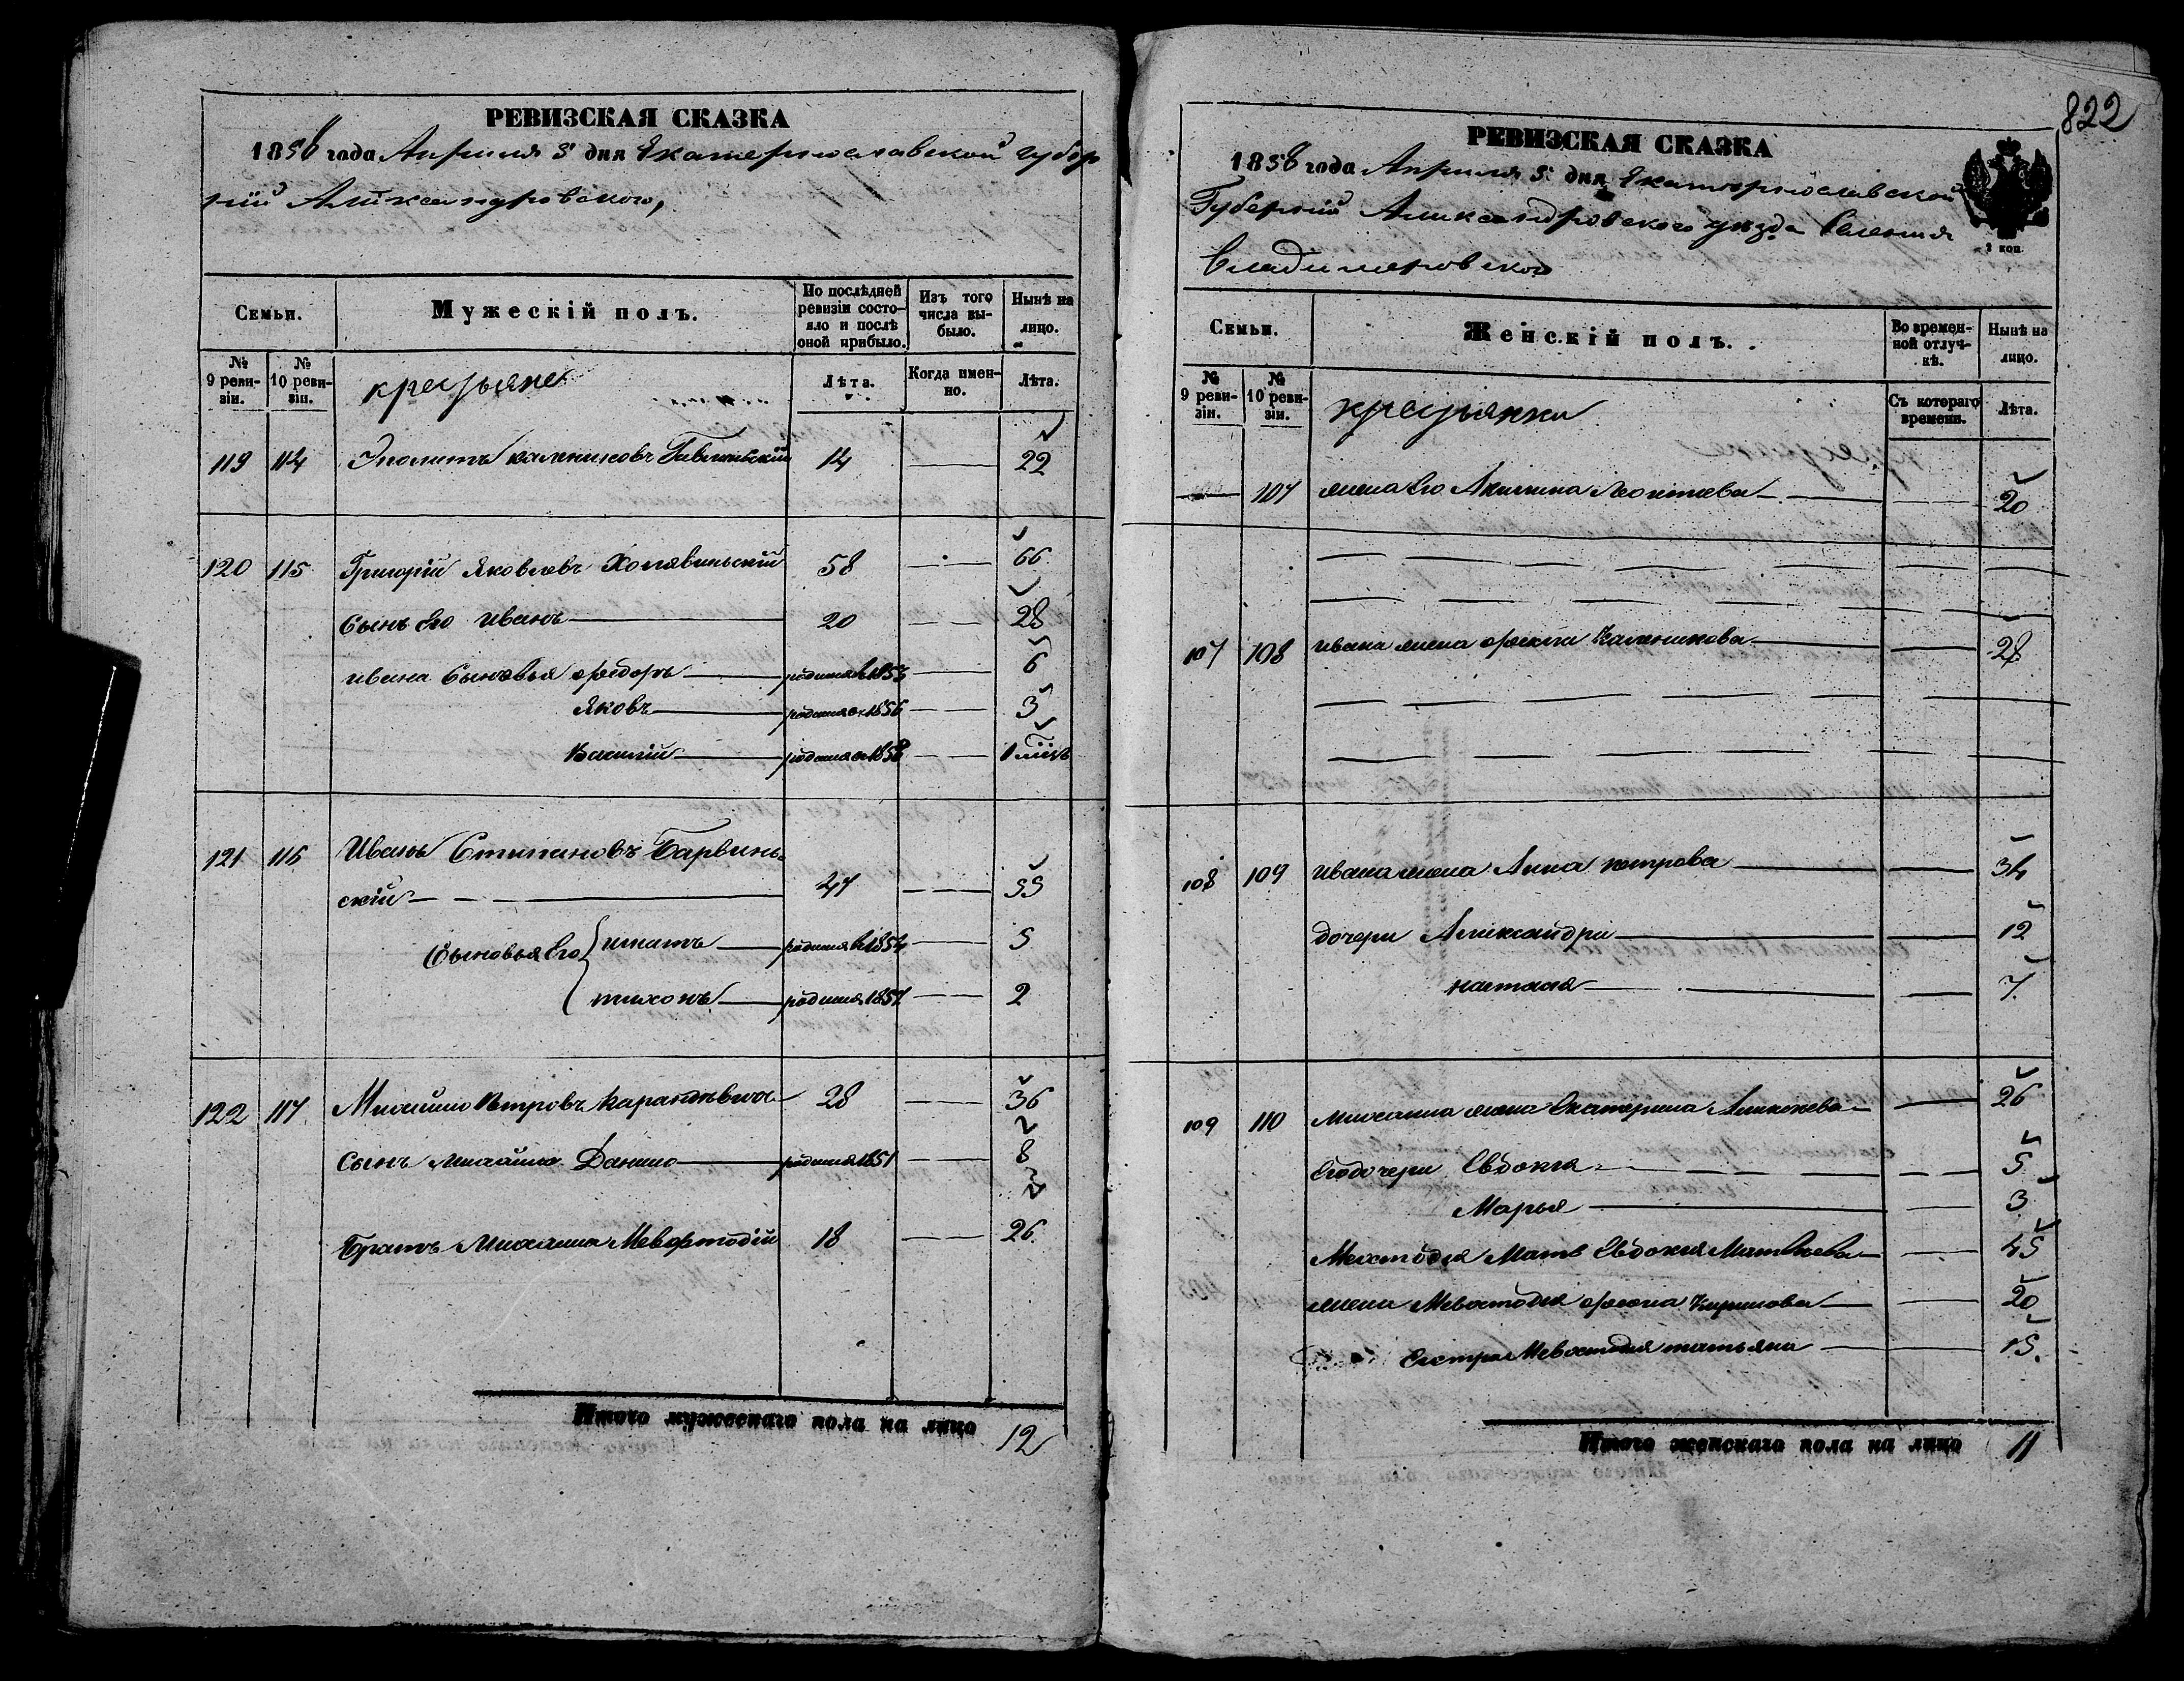 РЕВИЗСКАЯ СКАЗКА
1858 года Апреля 5 дня Екатеринославской губер
ніи Александровского,
Семьи.
Мужескій полъ.
По послѣдней ревизіи состояло и послѣ оной прибыло.
Изъ того числа выбыло.
Нынѣ на лицо.
№ 9 ревизіи.
№ 10 ревизіи.
крестьяне
Лѣта.
Когда именно.
Лѣта.
119 114 Иполитъ Калениковъ 14 — 22
120 115 Григорій Яковлевъ Холявинскій 58 — 66
Сынъ его иванъ — 20 — 28
ивана Сыновья федоръ — родился в 1853 — 6
Яковъ — родился в 1856 — 3
Василій — родился в 1858 — 1
121 116 Иванъ Степановъ Барвинь-
скій — 47 — 55
Сыновья его игнатъ — родился в 1854 — 5
тихонъ — родился 1857 — 2
122 117 Михайло Петровъ 28 — 36
Сынъ михайла Данило — родился 1851 — 8
Братъ Михаила Мефодій 18 — 26
Итого мужескаго пола на лицо 12
822
РЕВИЗСКАЯ СКАЗКА
1858 года Апреля 5 дня Екатеринославской
Губерніи Александровского уезда Селения
Владимировского
2 коп.
Семьи.
Женскій полъ.
Во временной отлучкѣ.
Нынѣ на лицо.
№ 9 ревизіи.
№ 10 ревизіи.
крестьянки
Съ котораго времени.
Лѣта.
— 107 жена его Акилина Леонтиева — 20
107 108 ивана жена Каленикова — 28
108 109 ивана жена Анна петрова — 34
дочери Александра — 12
наталя — 7
109 110 михаила жена Екатерина Алексеева — 26
его дочери Евдокия — 5
Марья — 3
Мать Евдокия Матвеева — 45
жена Кирилова — 20
Сестра татьяна — 15.
Итого женскаго пола на лицо 11